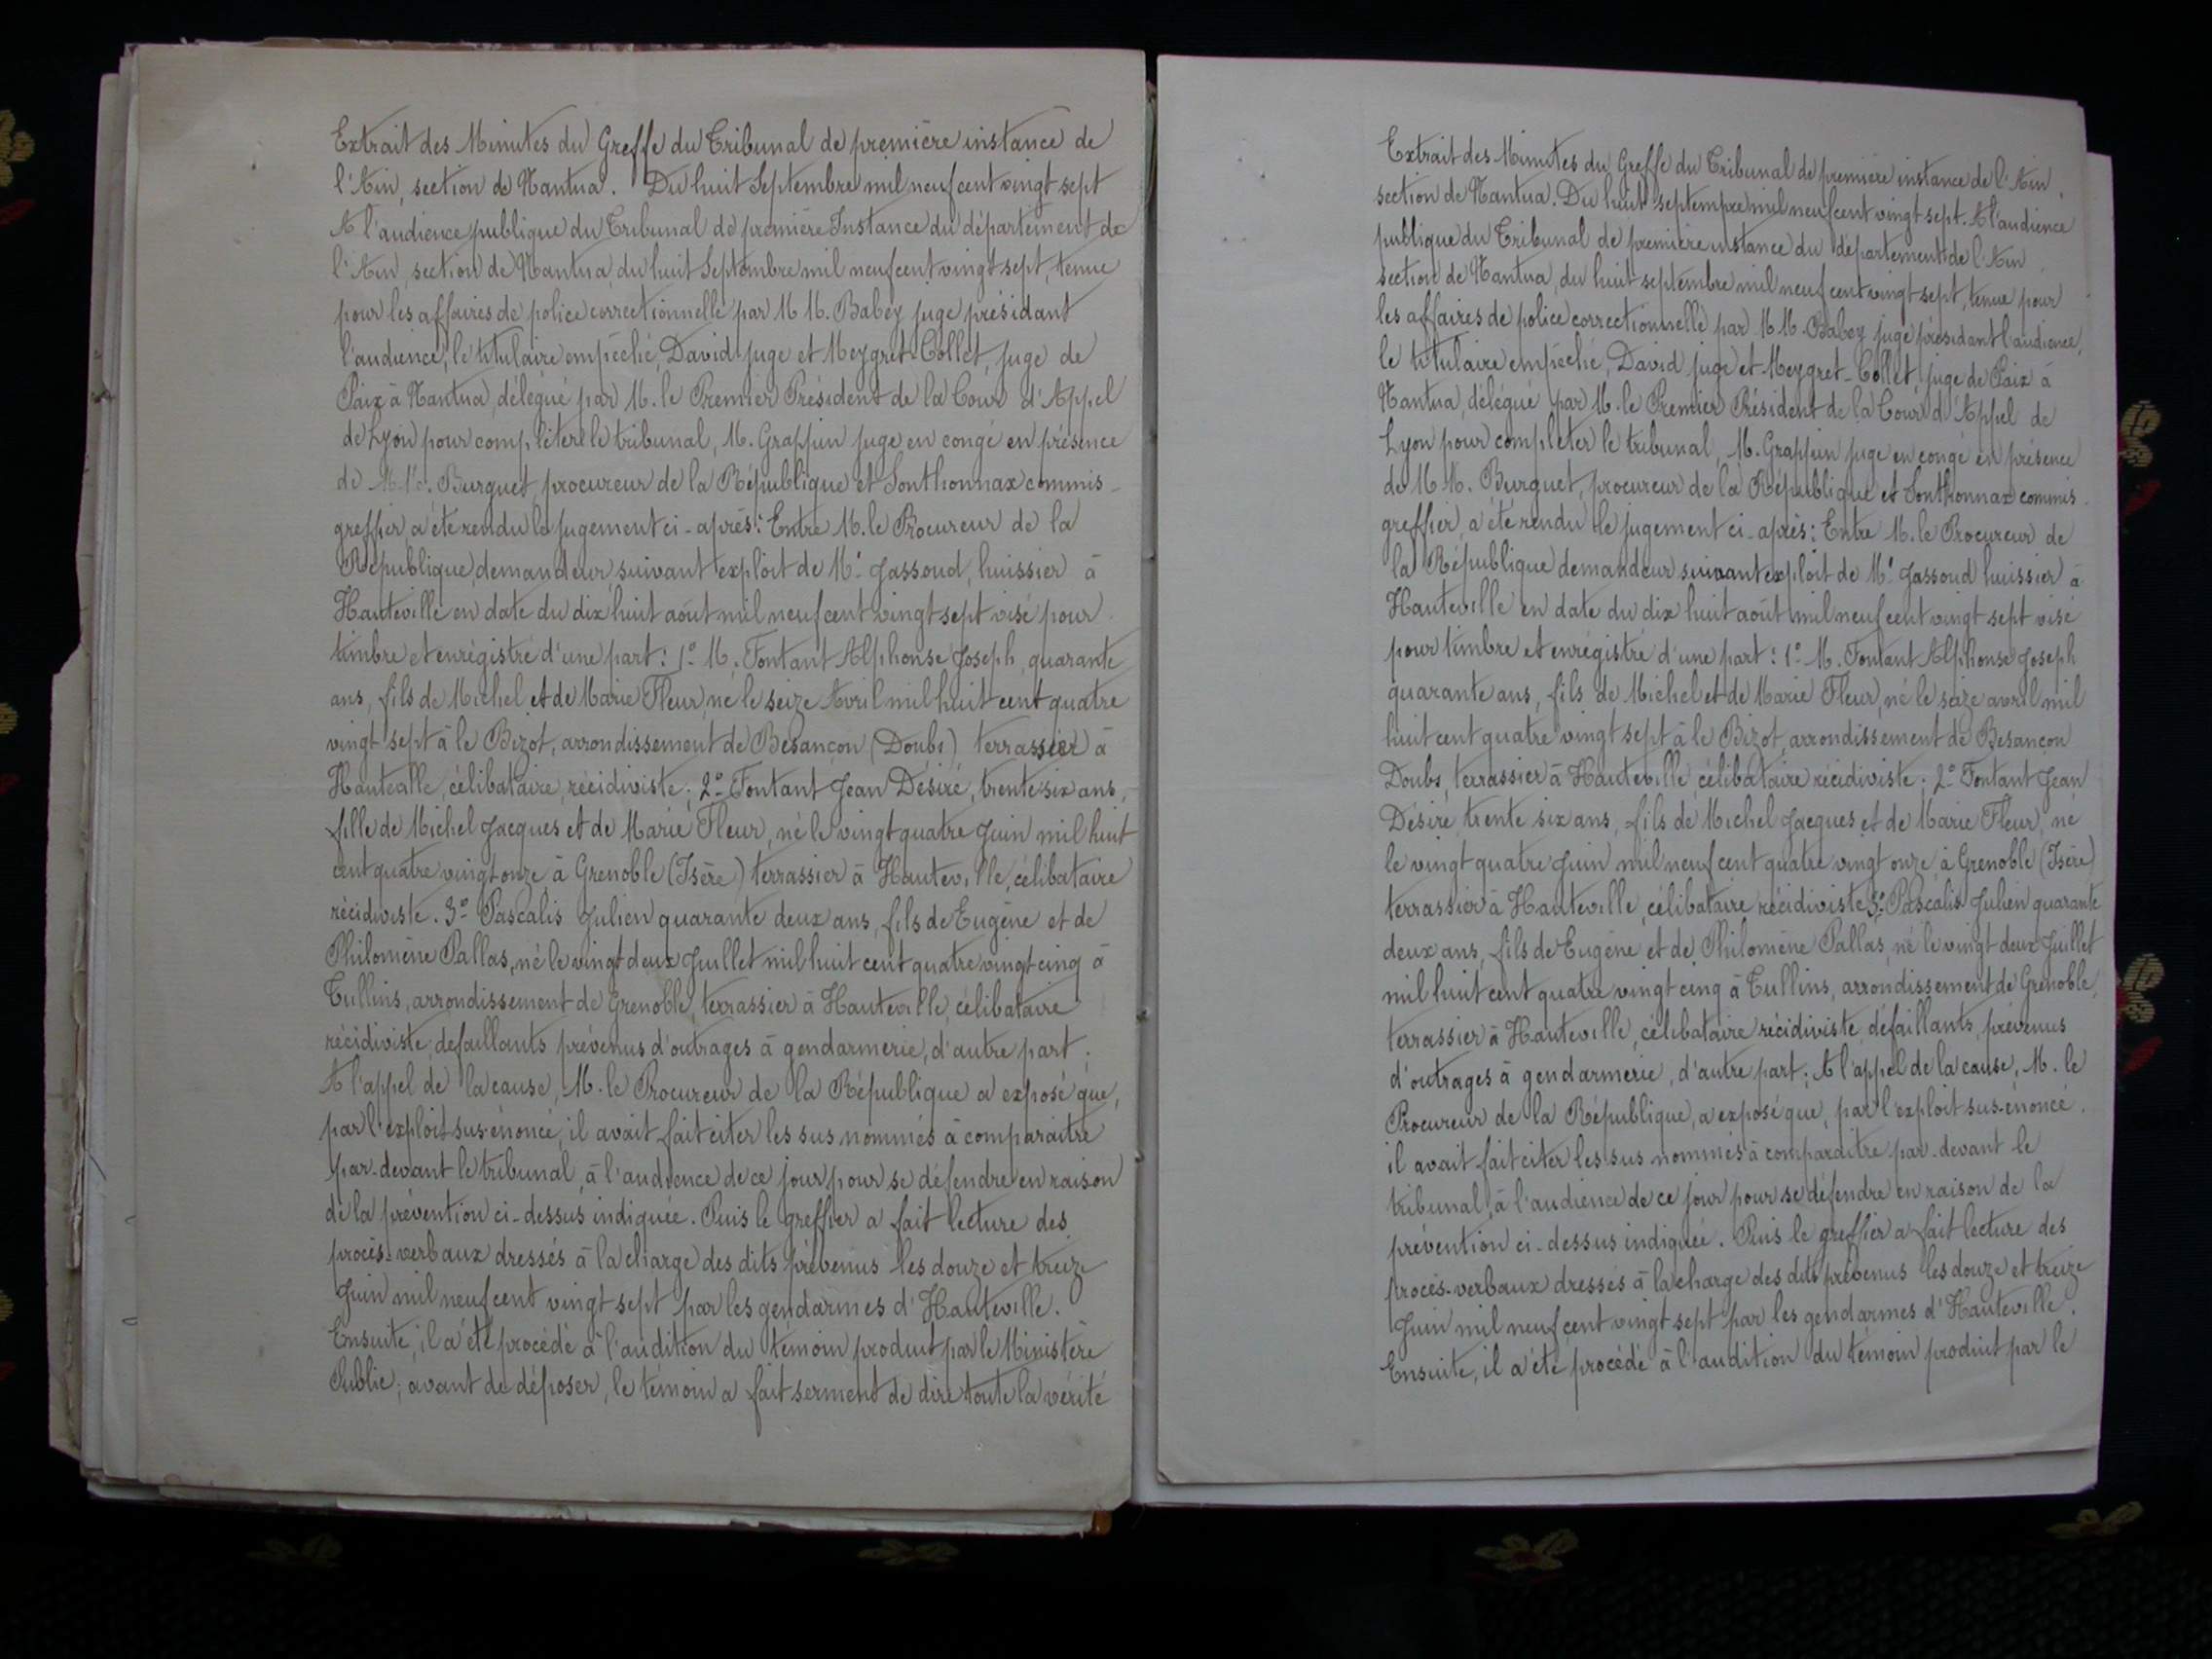 Extrait des Minutes du Greffe du Tribunal de première instance de
l'Ain, section de Nantua. Du huit Septembre mil neuf cent vingt sept
A l'audience publique du Tribunal de première Instance du département de
l'Ain, section de Nantua, du huit Septembre mil neuf cent vingt sept, tenue
pour les affaires de police correctionnelle par M M. Babey juge présidant
l'audience, le titulaire empêché, David juge et Meygret-Collet, juge de
Paix à Nantua, délégué par M. le Premier Président de la Cour d'Appel
de Lyon pour compléter le tribunal, M. Grappin juge en congé en présence
de M M. Burguet, procureur de la République et Sonthonnax commis-
greffier, a été rendu le jugement ci-après: Entre M. le Procureur de la
République, demandeur suivant exploit de Me Jassoud, huissier à
Hauteville en date du dix huit août mil neuf cent vingt sept visé pour
timbre et enrégistré d'une part: 1° M. Fontant Alphonse Joseph, quarante
ans, fils de Michel et de Marie Fleur, né le seize Avril mil huit cent quatre
vingt sept à le Bizot, arrondissement de Besançon (Doubs) terrassier à
Hautealle, célibataire, récidiviste; 2° Fontant Jean Désiré, trente six ans,
fille de Michel Jacques et de Marie Fleur, né le vingt quatre Juin mil huit
cent quatre vingt onze à Grenoble (Isère) terrassier à Hauteville, célibataire
récidiviste. 3° Pascalis Julien quarante deux ans, fils de Eugène et de
Philomène Pallas, né le vingt deux Juillet mil huit cent quatre vingt cinq à
Tullins, arrondissement de Grenoble, terrassier à Hauteville, célibataire
récidiviste, defaillants prévenus d'outrages à gendarmerie, d'autre part;
A l'appel de la cause, M. le Procureur de la République a exposé que,
par l'exploit sus-énoncé, il avait fait citer les sus nommés à comparaitre
par-devant le tribunal, à l'audience de ce jour pour se défendre en raison
de la prévention ci-dessus indiquée. Puis le greffier a fait lecture des
procès-verbaux dressés à la charge des dits prévenus les douze et treize
Juin mil neuf cent vingt sept par les gendarmes d'Hauteville.
Ensuite, il a été procédé à l'audition du témoin produit par le Ministère
Public; avant de déposer, le témoin a fait serment de dire toute la vérité
Extrait des Minutes du Greffe du Tribunal de première instance de l'Ain
section de Nantua. Du huit septempre mil neuf cent vingt sept. A l'audience
publique du Tribunal de première instance du département de l'Ain
section de Nantua, du huit septembre mil neuf cent vingt sept, tenue pour
les affaires de police correctionnelle par M M. Babey juge présidant l'audience,
le titulaire empêché, David juge et Meygret-Collet, juge de Paix à
Nantua, délégué par M. le Premier Président de la Cour d'Appel de
Lyon pour compléter le tribunal, M. Grappin juge en congé en présence
de M M. Burguet, procureur de la République et Sonthonnax commis-
greffier, a été rendu le jugement ci-après: Entre M. le Procureur de
la République demandeur suivant exploit de Me Jassoud huissier à
Hauteville en date du dix huit août mil neuf cent vingt sept visé
pour timbre et enrégistré d'une part: 1° M. Fontant Alphonse Joseph
quarante ans, fils de Michel et de Marie Fleur, né le seize avril mil
huit cent quatre vingt sept à le Bizot, arrondissement de Besançon
Doubs, terrassier à Hauteville célibataire récidiviste; 2° Fontant Jean
Désiré trente six ans, fils de Michel Jacques et de Marie Fleur, né
le vingt quatre Juin mil neuf cent quatre vingt onze à Grenoble (Isère)
terrassier à Hauteville, célibataire récidiviste 3° Pascalis Julien quarante
deux ans, fils de Eugène et de Philomène Pallas, né le vingt deux Juillet
mil huit cent quatre vingt cinq à Tullins, arrondissement de Grenoble,
terrassier à Hauteville, célibataire récidiviste, défaillants, prévenus
d'outrages à gendarmerie, d'autre part; A l'appel de la cause, M. le
Procureur de la République, a exposé que, par l'exploit sus-énoncé,
il avait fait citer les sus nommés à comparaitre par-devant le
tribunal, à l'audience de ce jour pour se défendre en raison de la
prévention ci-dessus indiquée. Puis le greffier a fait lecture des
procès-verbaux dressés à la charge des dits prévenus les douze et treize
Juin mil neuf cent vingt sept par les gendarmes d'Hauteville.
Ensuite, il a été procédé à l'audition du témoin produit par le